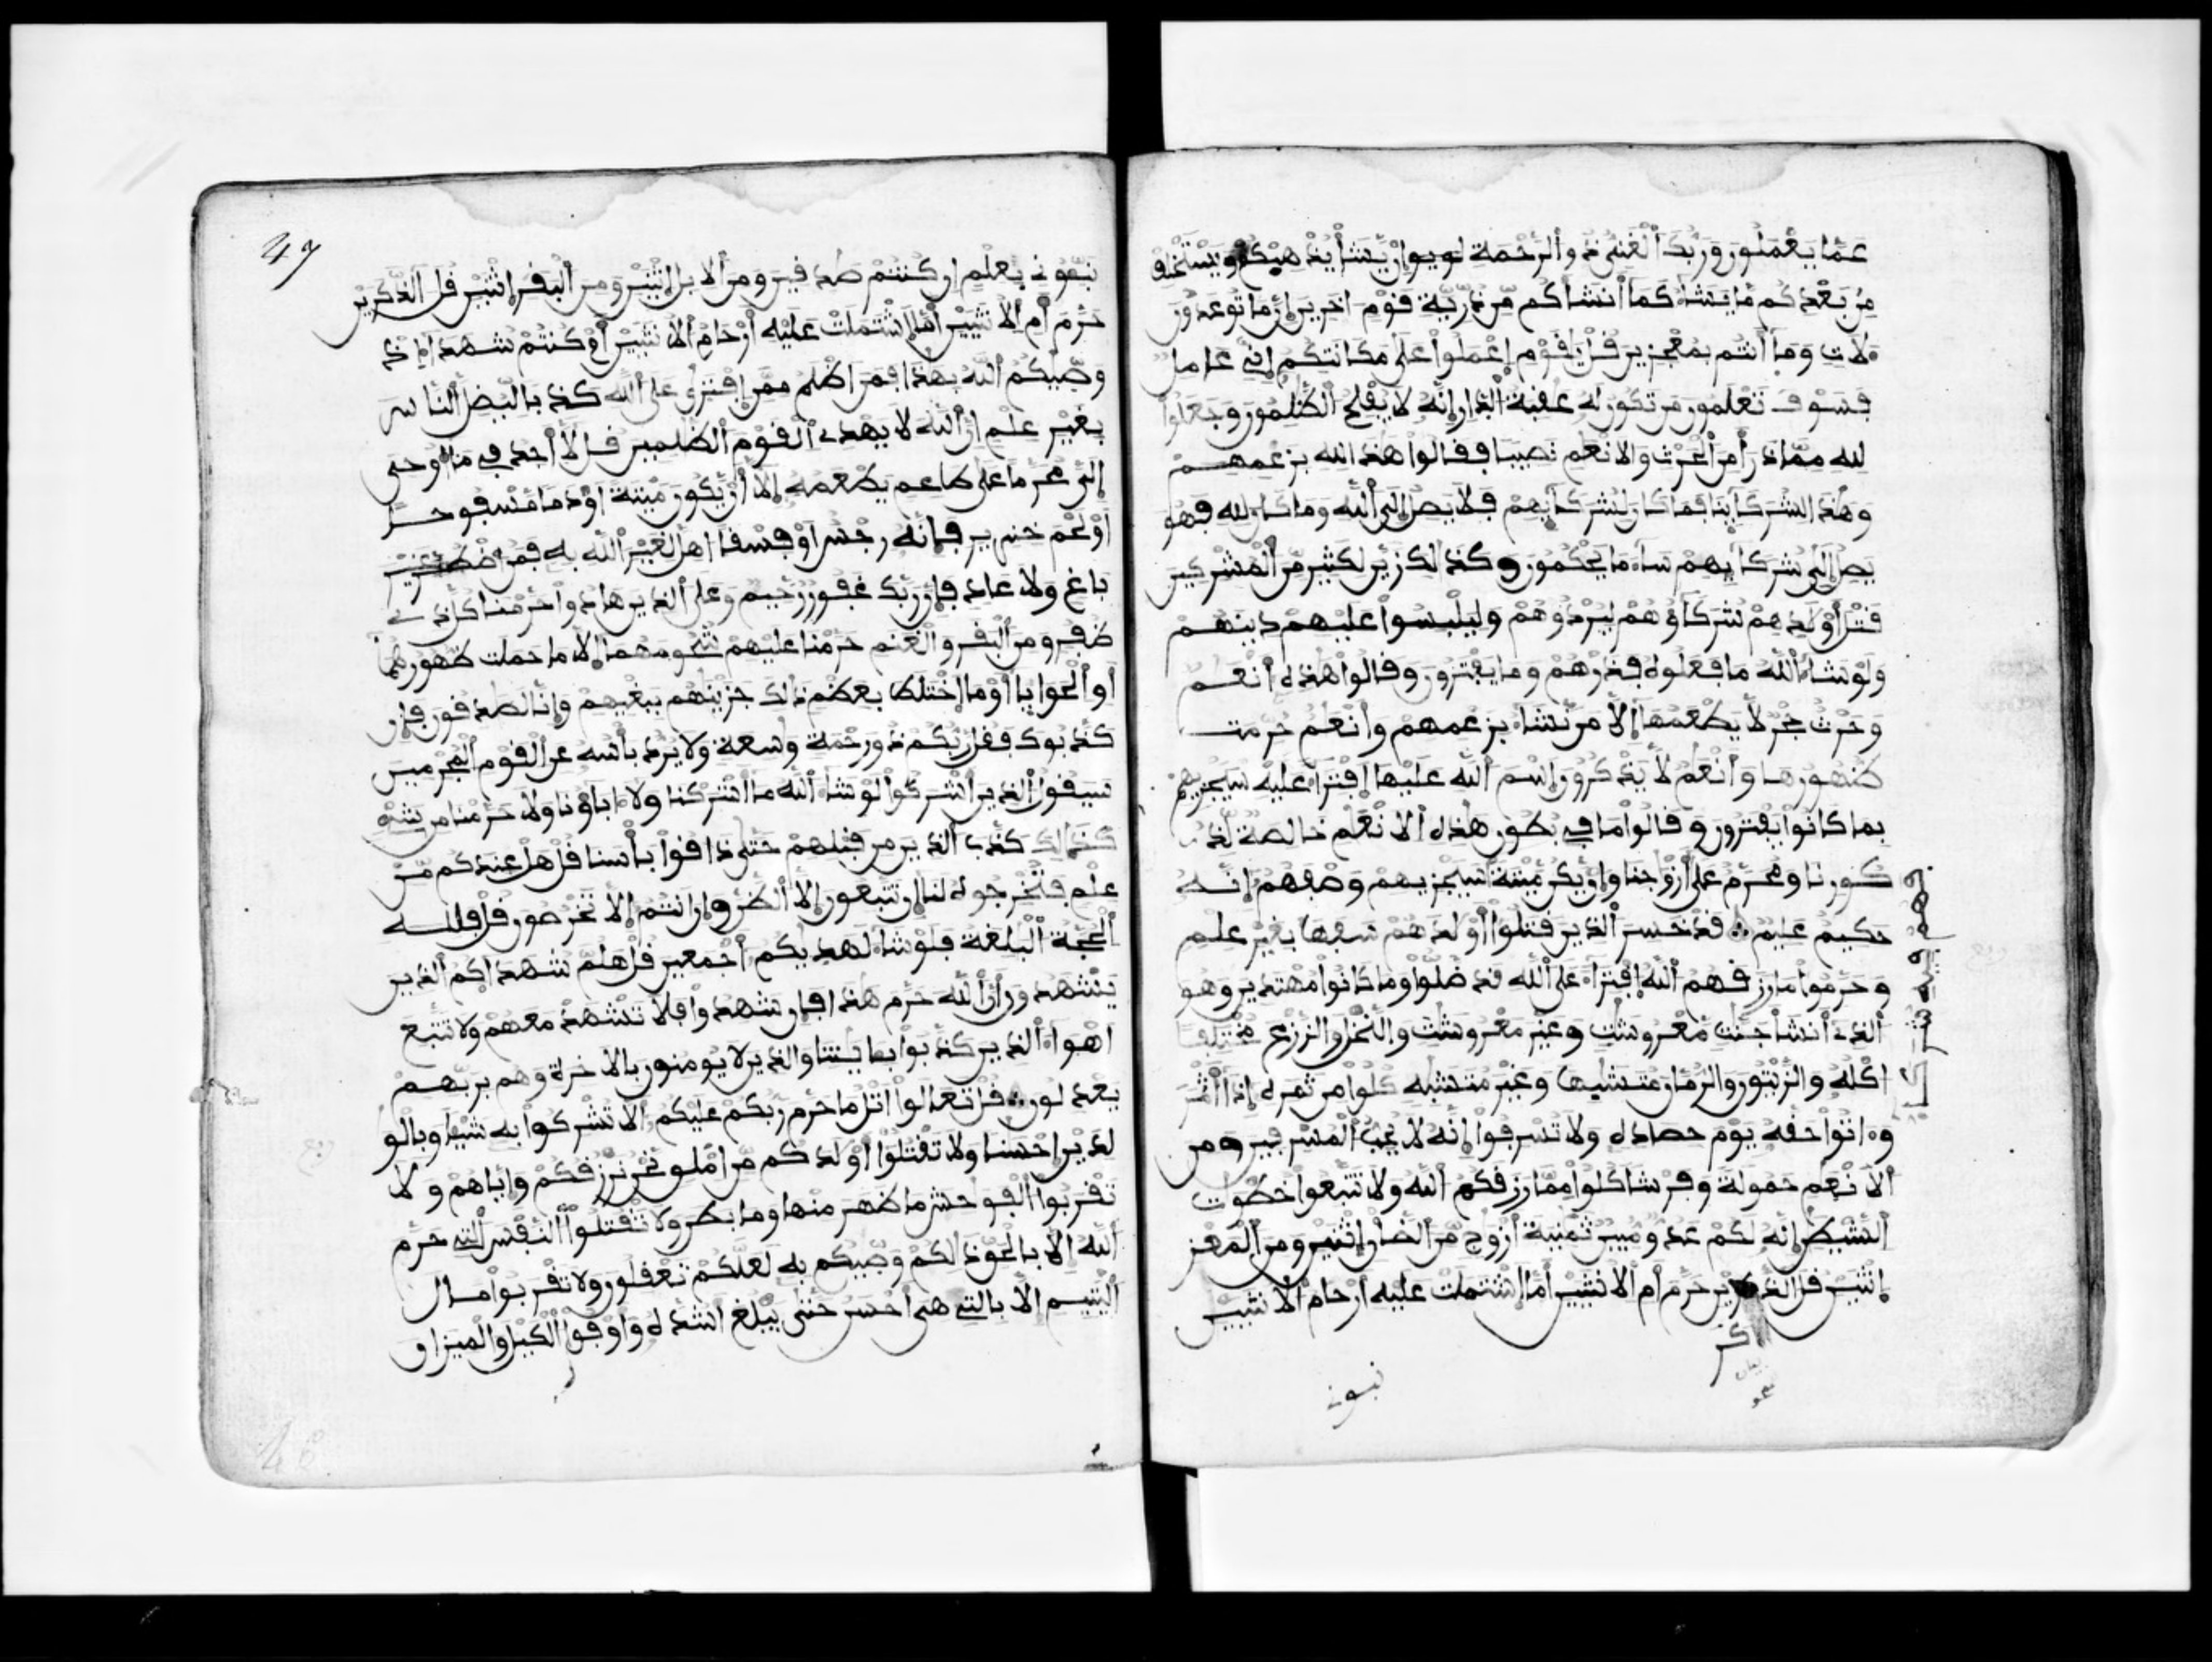 عما يعملون وربك الغنى ذو الرحمة إن يشأ يذهبكم ويستخلف
من بعدكم ما يشاء كما أنشأكم من ذرية قوم اخرين إن ما توعدون
ءلات وما أنتم بمعجزين قل يقوم إعملوا على مكانتكم إنى عامل
فسوف تعلمون من تكون له عقبة الدار إنه لا يفلح الظلمون وجعلوا
لله مما ذرأ من الحرث والانعم نصيبا فقالوا هذا لله بزعمهم
وهذا لشركاينا فما كان لشركايهم فلا يصل إلى الله وما كان لله فهو
يصل إلى شركايهم ساء ما يحكمون وكذالك زين لكثير من المشركين
قتل أولدهم شركاؤهم ليردوهم وليلبسوا عليهم دينهم
ولو شاء الله ما فعلوه فذرهم وما يفترون وقالوا هذه أنعم
وحرث حجر لا يطعمها إلا من نشاء بزعمهم وأنعم حرمت
ظهورها وأنعم لا يذكرون إسم الله عليها إفتراء عليه سيجزيهم
بما كانوا يفترون وقالوا ما في بطون هذه الانعم خالصة لذ
كورنا ومحرم على أزوجنا وإن يكن ميتة سيجزيهم وصفهم إنه
حكيم عليم قد خسر الذين قتلوا أولدهم سفها بغير علم
وحرموا ما رزقهم الله إفتراء على الله قد ضلوا وما كانوا مهتدين وهو
الذى أنشأ جنت معروشت وغير معروشت والنخل والزرع مختلفا
اكله والزيتون والرمان متشبها وغير متشبه كلوا من ثمره إذا أثمر
وءاتوا حقه يوم حصاده ولا تسرفوا إنه لا يحب المسرفين ومن
الانعم حمولة وفرشا كلوا مما رزقكم الله ولا تتبعوا خطوت
الشيطن إنه لكم عدو مبين ثمنية أزوج من الضأن إثنين ومن المعز
إثنين قل الذكرين حرم أم الانثيين أما اشتملت عليه أرحام الانثيين
نبـونے
47
نبئونے بعلم إن كنتم صدقين ومن الابل إثنين ومن البقر إثنين قل الذكرين
حرم أم الانثيين أما اشتملت عليه أرحام الانثيين أم كنتم شهداء إذ
وصيكم الله بهذا فمن أظلم ممن إفترى على الله كذبا ليضل الناس
بغير علم إن الله لا يهدى القوم الظلمين قل لا أجد في ما أوحى
إلى محرما على طاعم يطعمه إلا أن يكون ميتة أو دما مسفوحا
أو لحم خنزير فإنه رجس أو فسقا اهل لغير الله به فمن اضطر غير
باغ ولا عاد فإن ربك غفور رحيم وعلى الذين هادوا حرمنا كل ذى
ظفر ومن البقر والغنم حرمنا عليهم شحومهما إلا ما حملت ظهورهما
أو الحوايا أو ما إختلط بعظم ذلك جزينهم ببغيهم وإنا لصدقون فإن
كذبوك فقل ربكم ذو رحمة وسعة ولا يرد بأسه عن القوم المجرمين
سيقول الذين أشركوا لو شاء الله ما أشركنا ولا ءاباؤنا ولا حرمنا من شىء
كذالك كذب الذين من قبلهم حتى ذاقوا بأسنا قل هل عندكم من
علم فتخرجوه لنا إن تتبعون إلا الظن وإن انتم إلا تخرصون قل فلله
الحجة البلغة فلو شاء لهديكم أجمعين قل هلم شهداءكم الذين
يشهدون أن الله حرم هذا فإن شهدوا فلا تشهد معهم ولا تتبع
أهواء الذين كذبوا بايتنا والذين لا يومنون بالاخرة وهم بربهم
يعدلون قل تعالوا اتل ما حرم ربكم عليكم الا تشركوا به شيئا وبالو
لدين إحسنا ولا تقتلوا أولدكم من إملق نحن نرزقكم وإياهم ولا
تقربوا الفوحش ما ظهر منها وما بطن ولا تقتلوا النفس التے حرم
الله إلا بالحق ذلكم وصيكم به لعلكم تعقلون ولا تقربوا مال
اليتيم إلا بالتے هى أحسن حتى يبلغ أشده وأوفوا الكيل والميزان
46